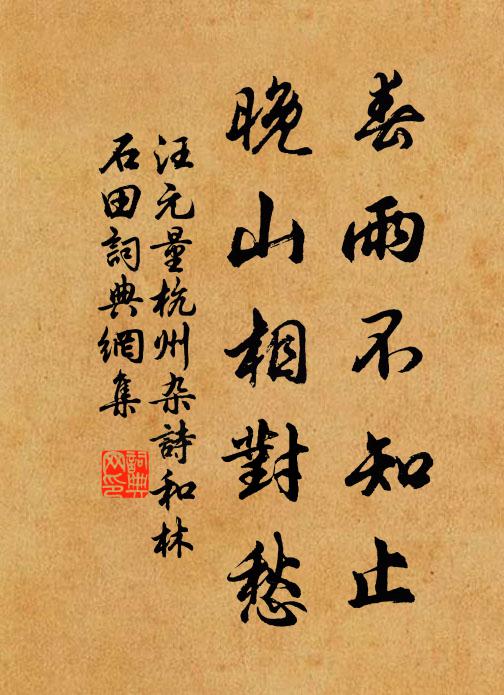 春雨不知止
晚山相對愁
汪元量杭州杂詩和林
石田詞典網集
詞典網印